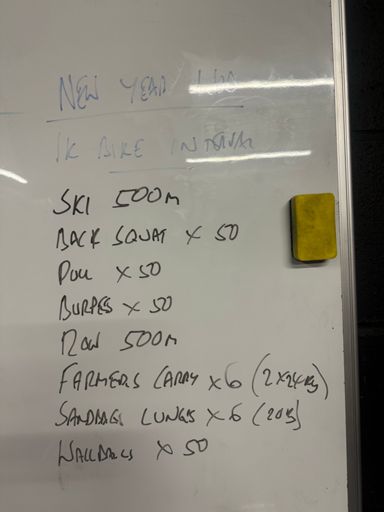 NEW YEAR
1K BIKE INTERVAL
SKI 500m
BACK SQUAT x 50
PULL x 50
BURPEES x 50
ROW 500m
FARMERS CARRY x 6 (2x24KG)
SANDBAGS LUNGES x 6 (20KG)
WALLBALLS x 50